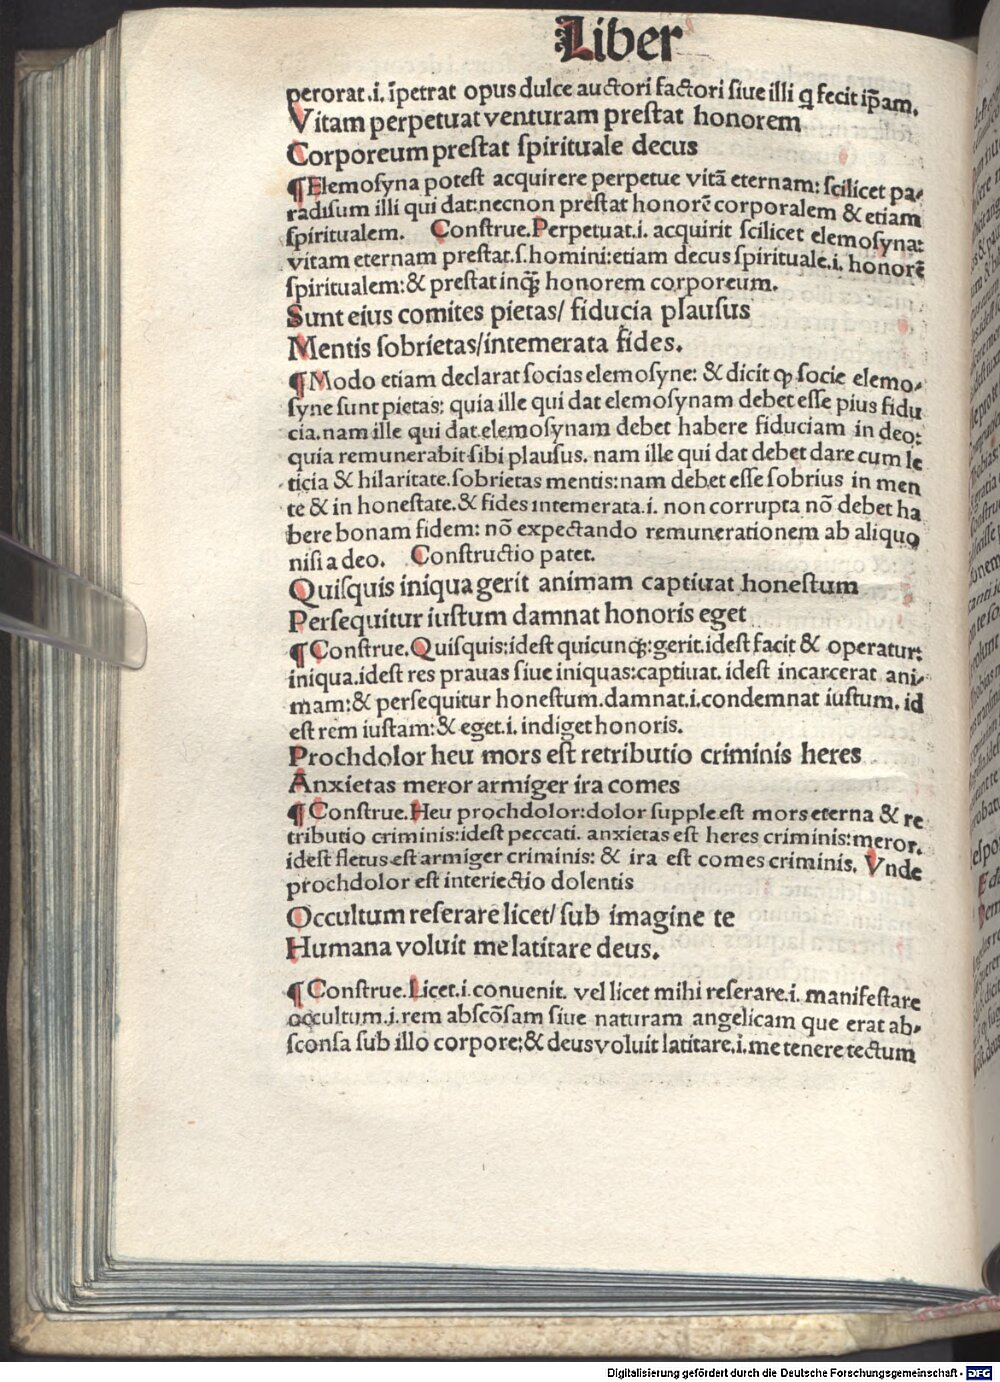 Liber
perorat.i. īpetrat opus dulce auctori factori siue illi ꝗ fecit ip̄am.
Vitam perpetuat venturam prestat honorem
Corporeum prestat spirituale decus
¶ Elemosyna potest acquirere perpetue vitā eternam: scilicet pa-
radisum illi qui dat: necnon prestat honorē corporalem & etiam
spiritualem. Construe. Perpetuat.i. acquirit scilicet elemosyna:
vitam eternam prestat.s. homini: etiam decus spirituale.i. honorē
spiritualem: & prestat inqꝫ honorem corporeum.
Sunt eius comites pietas/ fiducia plausus
Mentis sobrietas/ intemerata fides.
¶ Modo etiam declarat socias elemosyne: & dicit ꝙ socie elemo-
syne sunt pietas: quia ille qui dat elemosynam debet esse pius fidu
cia. nam ille qui dat elemosynam debet habere fiduciam in deo:
quia remunerabit sibi plausus. nam ille qui dat debet dare cum le
ticia & hilaritate. sobrietas mentis: nam debet esse sobrius in men
te & in honestate. & fides intemerata.i. non corrupta nō debet ha
bere bonam fidem: nō expectando remunerationem ab aliquo
nisi a deo. Constructio patet.
Quisquis iniqua gerit animam captiuat honestum
Persequitur iustum damnat honoris eget
¶ Construe. Quisquis: idest quicunqꝫ: gerit. idest facit & operatur:
iniqua. idest res prauas siue iniquas: captiuat. idest incarcerat ani-
mam: & persequitur honestum. damnat.i. condemnat iustum. id
est rem iustam: & eget.i. indiget honoris.
Prochdolor heu mors est retributio criminis heres
Anxietas meror armiger ira comes
¶ Construe. Heu prochdolor: dolor supple est mors eterna & re
tributio criminis: idest peccati. anxietas est heres criminis: meror.
idest fletus est armiger criminis: & ira est comes criminis. Vnde
prochdolor est interiectio dolentis
Occultum reserare licet/ sub imagine te
Humana voluit me latitare deus.
¶ Construe. Licet.i. conuenit. vel licet mihi reserare.i. manifestare
occultum.i. rem abscōsam siue naturam angelicam que erat ab-
sconsa sub illo corpore: & deus voluit latitare.i. me tenere tectum
Digitalisierung gefördert durch die Deutsche Forschungsgemeinschaft - DFG